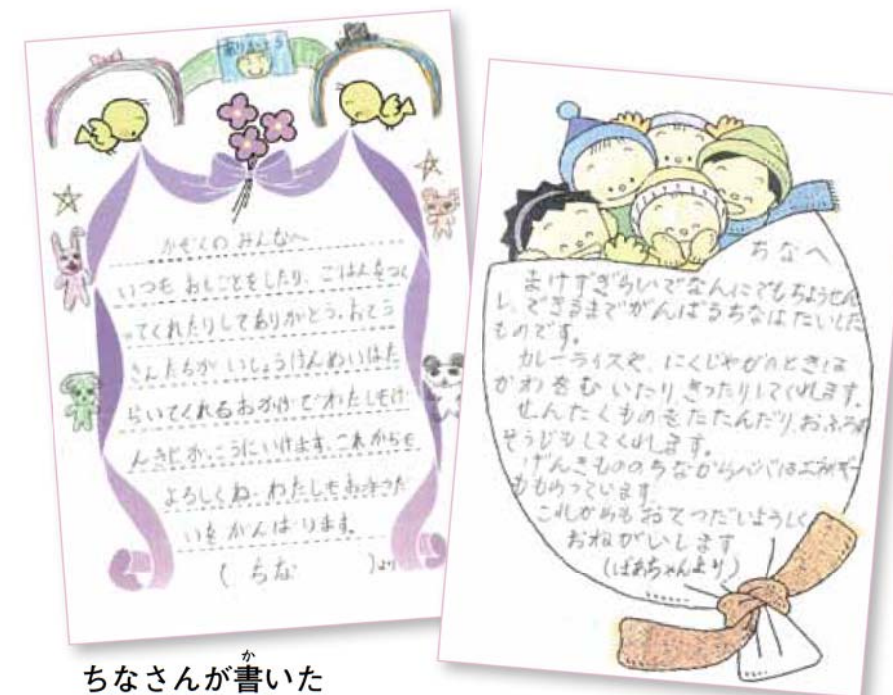 かぞくの みんなへ
いつも おしごとをしたり、ごはんをつく
ってくれたりしてありがとう。おとう
さんたちが いっしょうけんめいはた
らいてくれるおかげでわたしもげ
んきにがっこうにいけます。これからも
よろしくね。わたしもおてつだ
いをがんばります。
( ちな )より
ちなへ
まけずぎらいでなんにでもちょうせん
し、できるまでがんばるちなはたいした
ものです。
カレーライスや、にくじゃがのときは
かわをむいたり、きったりしてくれます。
せんたくものをたたんだり、おふろの
そうじもしてくれます。
げんきもののちなからババはエネルギー
ももらっています。
これからもおてつだいよろしく
おねがいします
(ばあちゃんより)
か
ちなさんが書いた